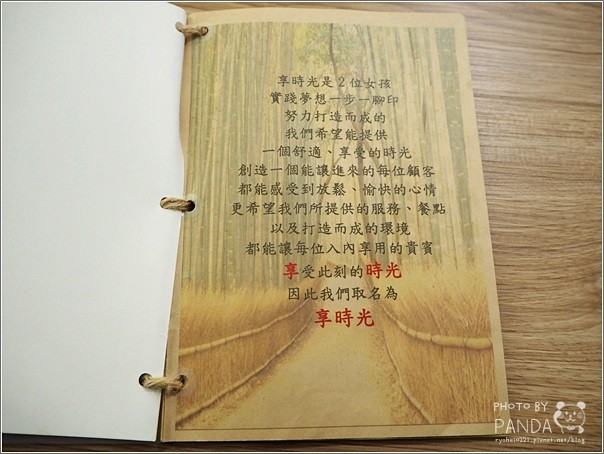 享時光是2位女孩
實踐夢想一步一腳印
努力打造而成的
我們希望能提供
一個舒適、享受的時光
創造一個能讓進來的每位顧客
都能感受到放鬆、愉快的心情
更希望我們所提供的服務、餐點
以及打造而成的環境
都能讓每位入內享用的貴賓
享受此刻的時光
因此我們取名為
享時光
PHOTO BY
PANDA
ryohei0221.pixnet.net/blog